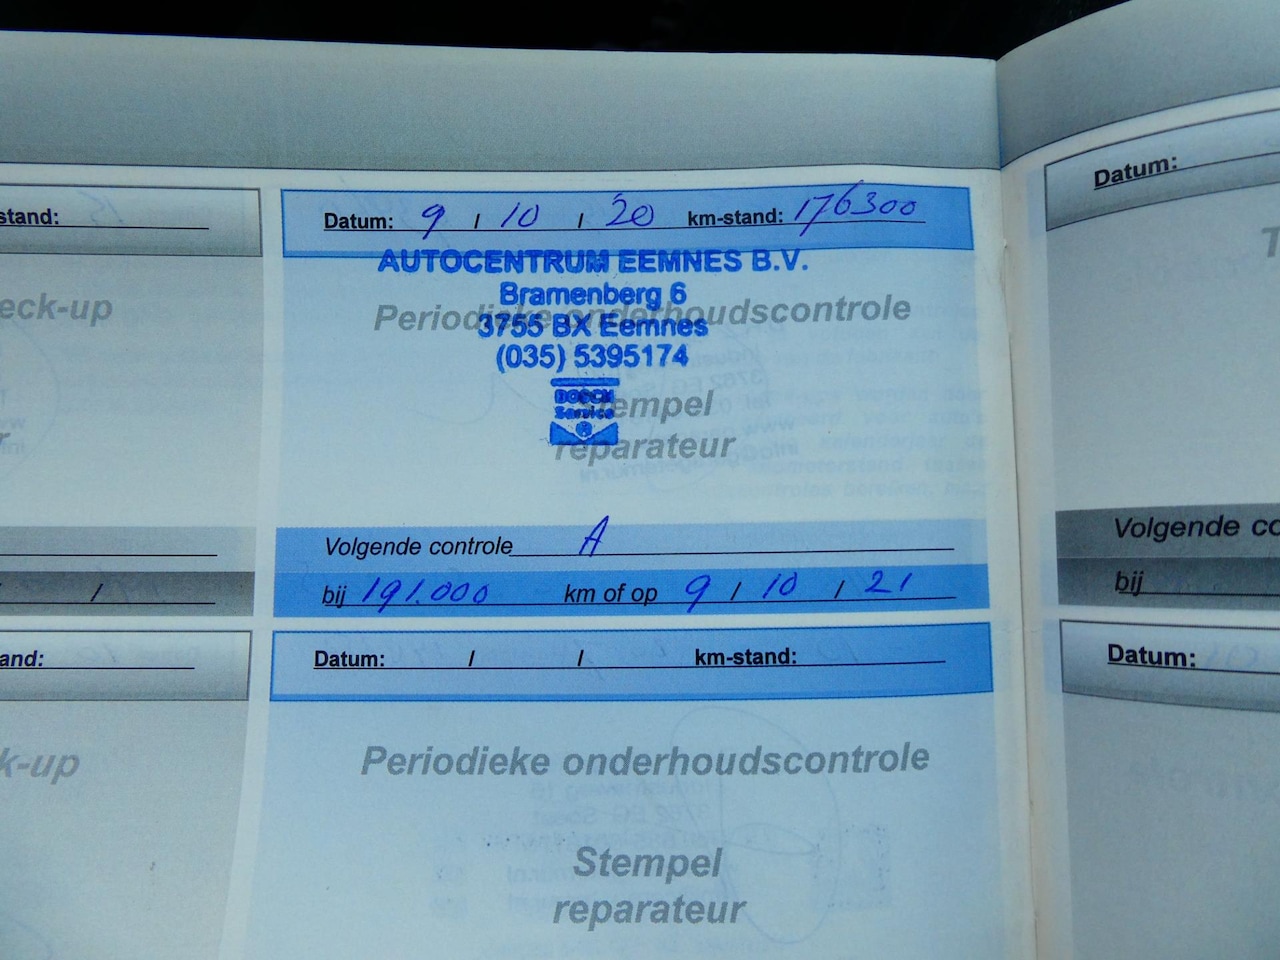 stand:
Datum: 9 / 10 / 20 km-stand: 176300
Datum:
AUTOCENTRUM EEMNES B.V.
Bramenberg 6
Periodieke onderhoudscontrole
3755 BX Eemnes
(035) 5395174
BOSCH
Service
Stempel
reparateur
eck-up
Volgende controle A
bij 191.000 km of op 9 / 10 / 21
/ /
Volgende co
bij
and:
Datum: / / km-stand:
Datum:
k-up
Periodieke onderhoudscontrole
Stempel
reparateur